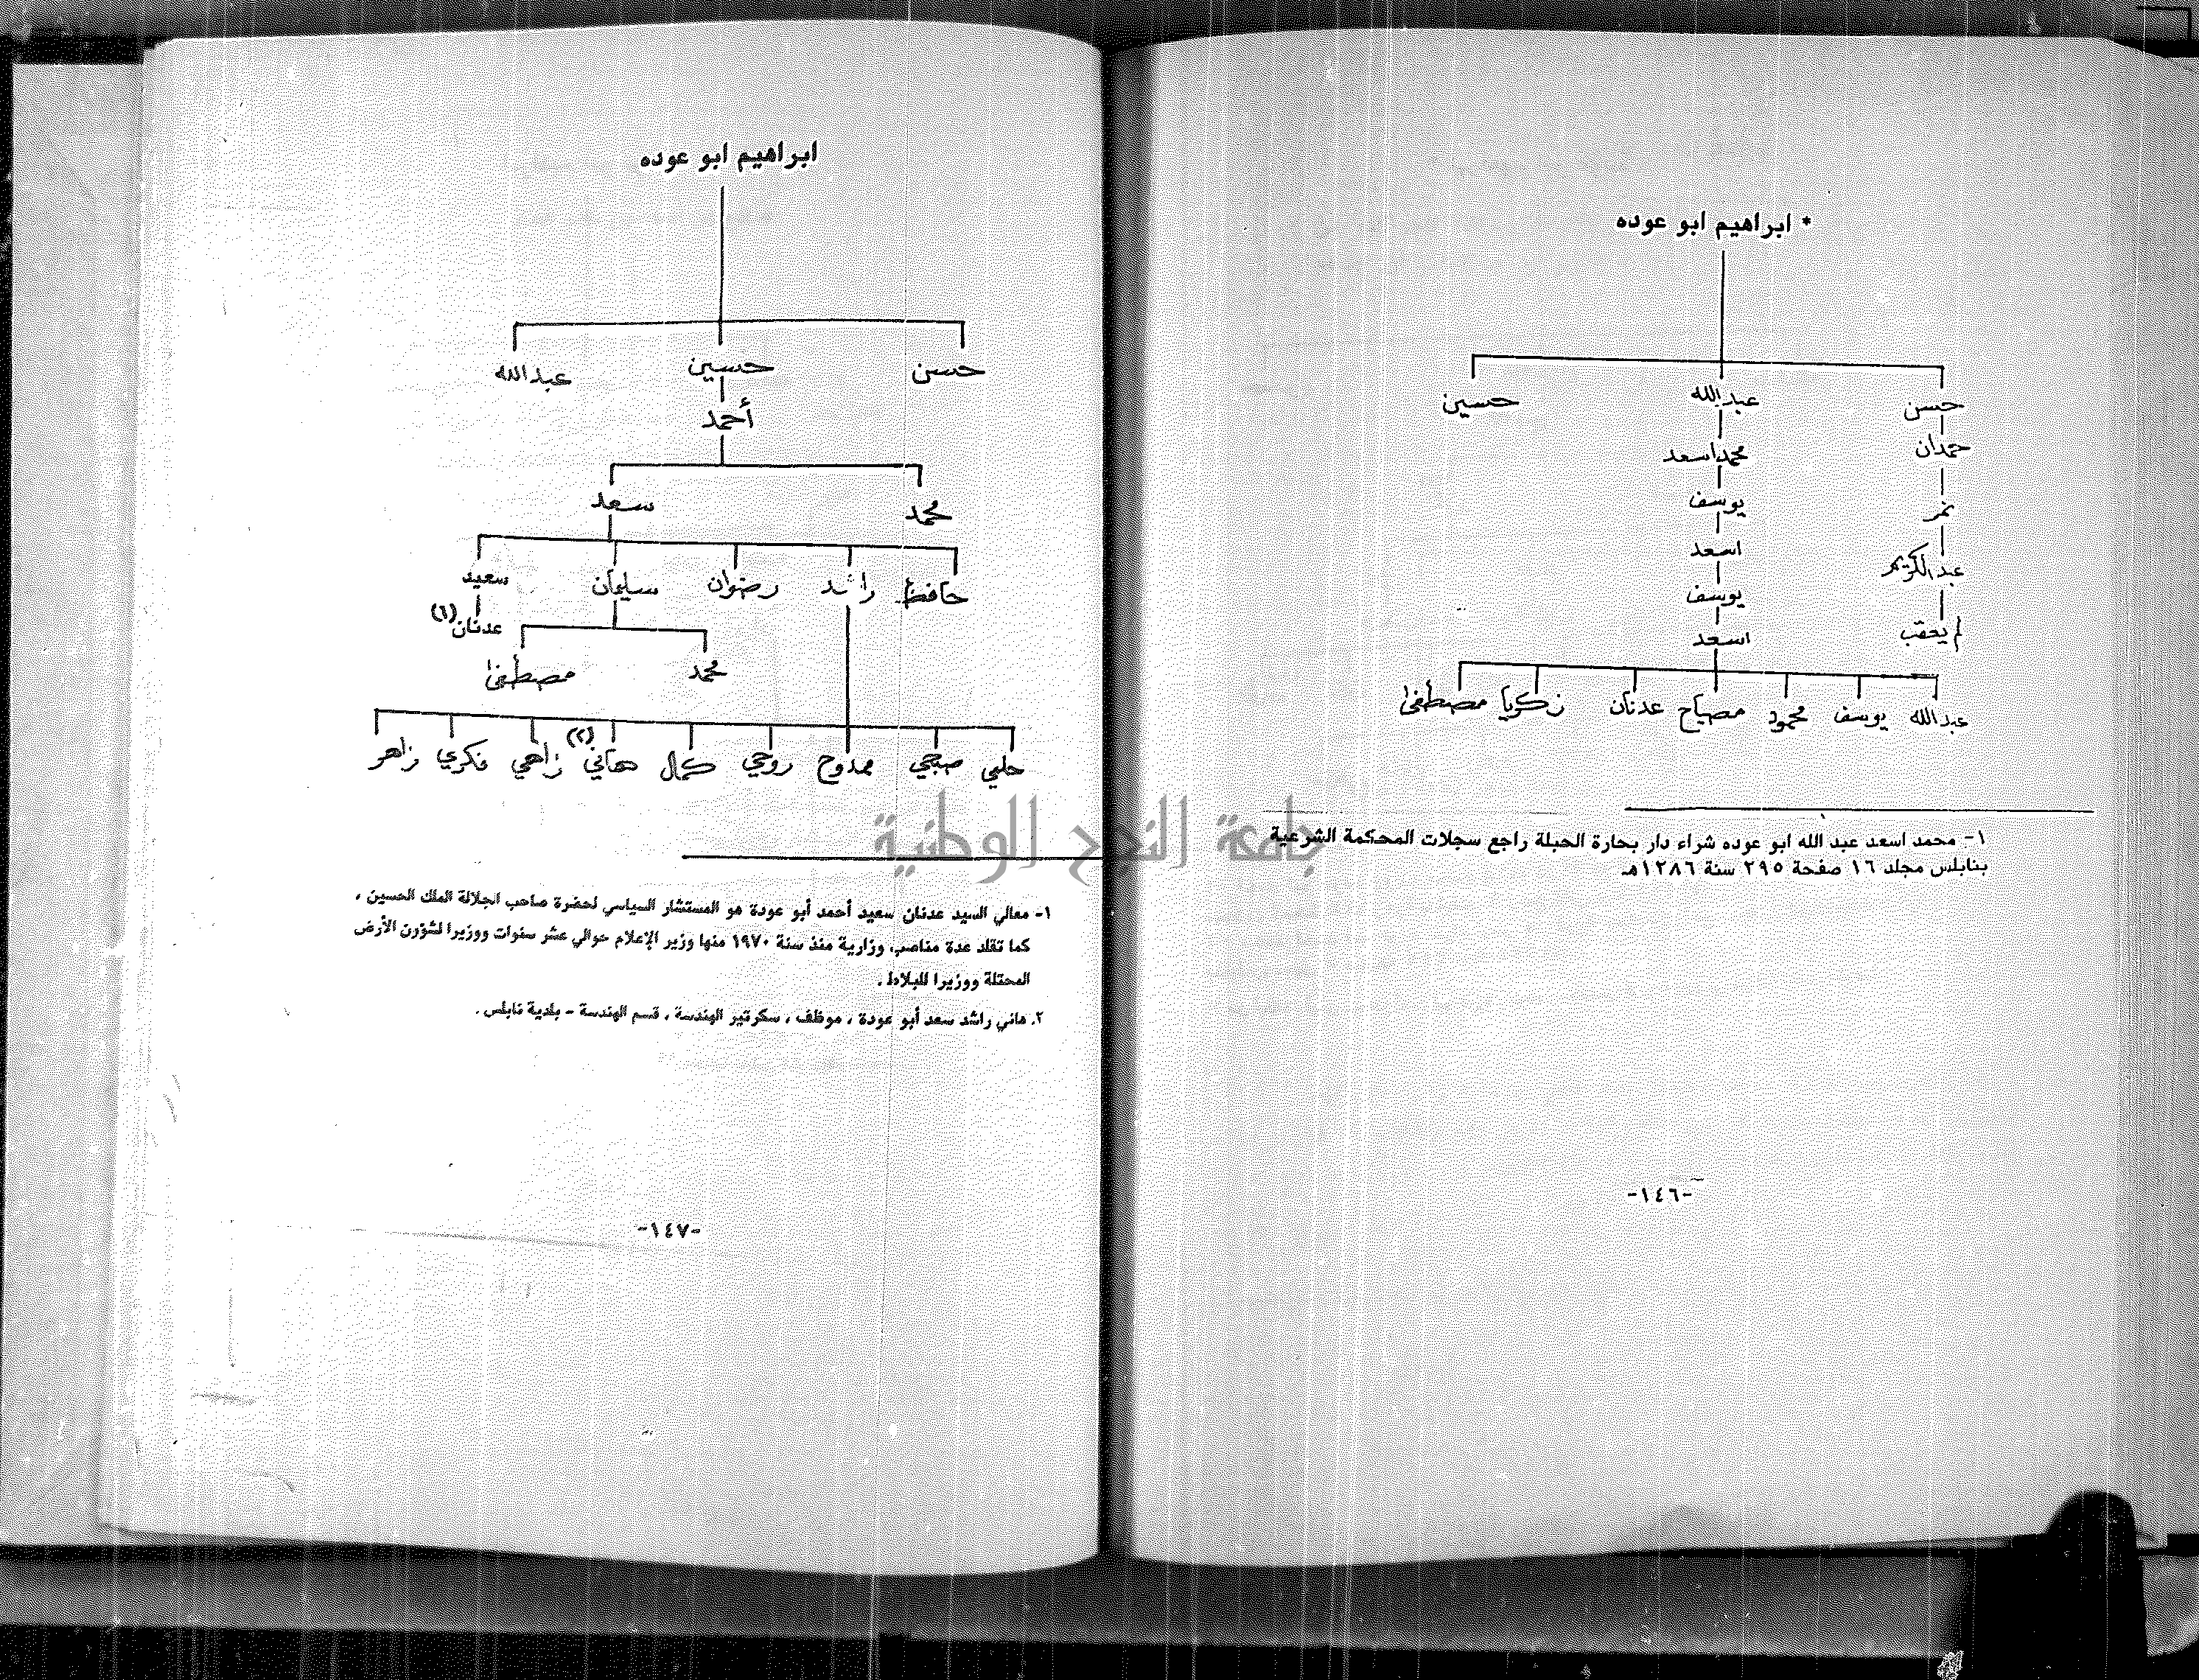 * ابراهيم ابو عوده
حسن عبدالله حسين
حمدان محمد اسعد
نمر يوسف
عبدالكريم اسعد
لم يعقب يوسف
اسعد
عبدالله يوسف محمود مصباح عدنان زكريا مصطفى
١- محمد اسعد عبد الله ابو عوده شراء دار بحارة الحبلة راجع سجلات المحكمة الشرعية
بنابلس مجلد ١٦ صفحة ٢٩٥ سنة ١٢٨٦هـ
-١٤٦-
ابراهيم ابو عوده
حسن حسين عبدالله
أحمد
محمد سعد
حافظ راشد رضوان سليمان سعيد
عدنان (١)
محمد مصطفى
حلمي صبحي ممدوح روحي كمال هاني (٢) زاهي فكري زاهر
١- معالي السيد عدنان سعيد أحمد أبو عودة هو المستشار السياسي لحضرة صاحب الجلالة الملك الحسين ،
كما تقلد عدة مناصب وزارية منذ سنة ١٩٧٠ منها وزير الإعلام حوالي عشر سنوات ووزيرا لشؤون الأرض
المحتلة ووزيرا للبلاط .
٢. هاني راشد سعد أبو عودة ، موظف ، سكرتير الهندسة ، قسم الهندسة - بلدية نابلس .
-١٤٧-
جامعة النجاح الوطنية